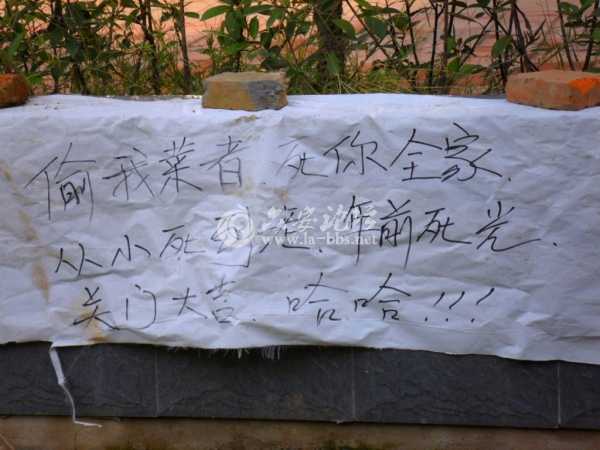 偷我菜者.死你全家.
从小死到老.年前死光.
关门大吉.哈哈!!!
六安论坛
www.la-bbs.net